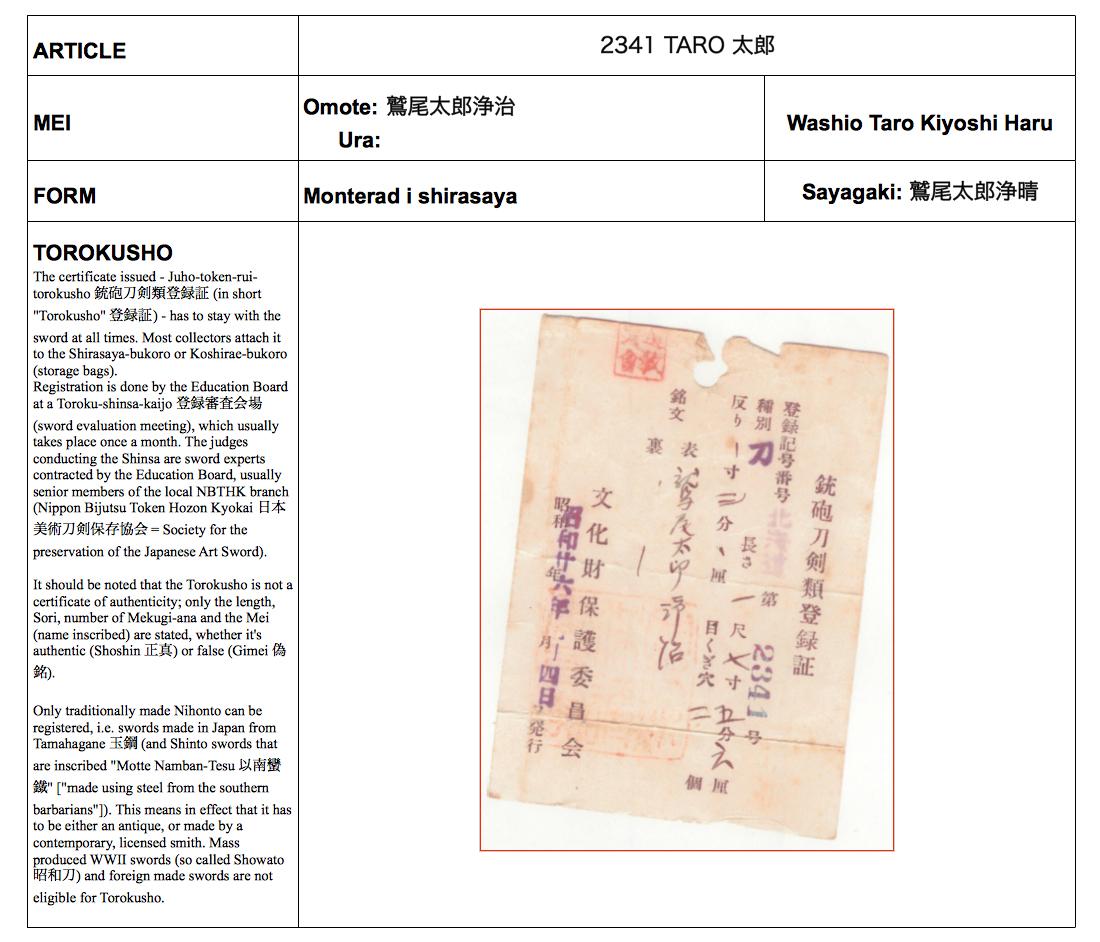 ARTICLE
2341 TARO 太郎
MEI
Omote: 鷲尾太郎浄治
Ura:
Washio Taro Kiyoshi Haru
FORM
Monterad i shirasaya
Sayagaki: 鷲尾太郎浄晴
TOROKUSHO
The certificate issued - Juho-token-rui-
torokusho 銃砲刀剣類登録証 (in short
"Torokusho" 登録証) - has to stay with the
sword at all times. Most collectors attach it
to the Shirasaya-bukoro or Koshirae-bukoro
(storage bags).
Registration is done by the Education Board
at a Toroku-shinsa-kaijo 登録審査会場
(sword evaluation meeting), which usually
takes place once a month. The judges
conducting the Shinsa are sword experts
contracted by the Education Board, usually
senior members of the local NBTHK branch
(Nippon Bijutsu Token Hozon Kyokai 日本
美術刀剣保存協会 = Society for the
preservation of the Japanese Art Sword).
It should be noted that the Torokusho is not a
certificate of authenticity; only the length,
Sori, number of Mekugi-ana and the Mei
(name inscribed) are stated, whether it's
authentic (Shoshin 正真) or false (Gimei 偽
銘).
Only traditionally made Nihonto can be
registered, i.e. swords made in Japan from
Tamahagane 玉鋼 (and Shinto swords that
are inscribed "Motte Namban-Tesu 以南蠻
鐵" ["made using steel from the southern
barbarians"]). This means in effect that it has
to be either an antique, or made by a
contemporary, licensed smith. Mass
produced WWII swords (so called Showato
昭和刀) and foreign made swords are not
eligible for Torokusho.
銃砲刀剣類登録証
登録記号番号 北海道 第 2341 号
種別 刀
長さ 一尺 寸五分六厘
反り 一寸三分 厘
目くぎ穴 二 個
銘文 表 鷲尾太郎浄治
裏
文化財保護委員会
昭和廿六年 月 四日 発行